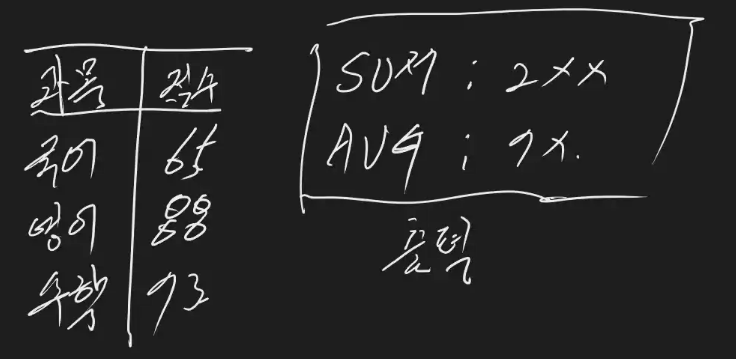 과목 점수
국어 65
영어 88
수학 93
SUM : 2xx
AVG : 9x.
출력